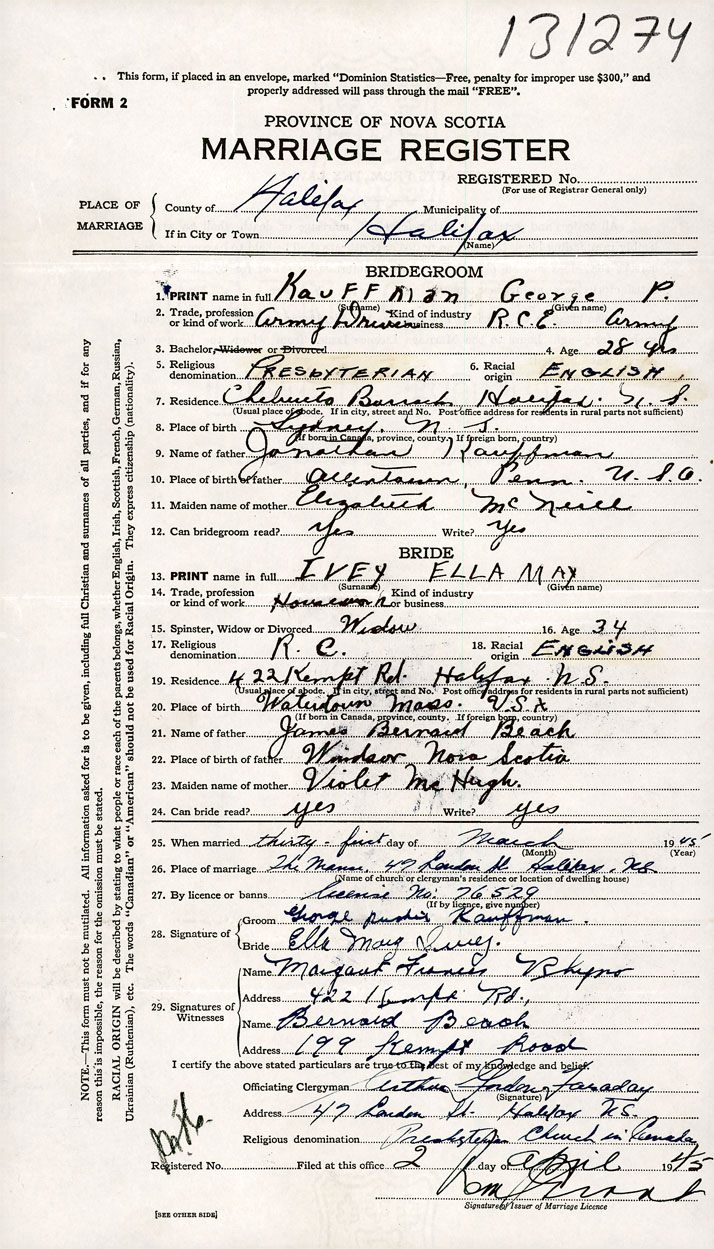 131274
This form, if placed in an envelope, marked "Dominion Statistics—Free, penalty for improper use $300," and
properly addressed will pass through the mail "FREE".
FORM 2
PROVINCE OF NOVA SCOTIA
MARRIAGE REGISTER
REGISTERED No.
(For use of Registrar General only)
PLACE OF MARRIAGE
County of Halifax Municipality of
If in City or Town Halifax
(Name)
BRIDEGROOM
1. PRINT name in full Kauffman George P.
(Surname) (Given name)
2. Trade, profession or kind of work Army Driver Kind of industry or business R.C.E. Army
3. Bachelor, Widower or Divorced 4. Age 28 yrs
5. Religious denomination PRESBYTERIAN 6. Racial origin ENGLISH
7. Residence Chebucto Barrack Halifax. N. S.
(Usual place of abode. If in city, street and No. Post office address for residents in rural parts not sufficient)
8. Place of birth Sydney. N. S.
(If born in Canada, province, county. If foreign born, country)
9. Name of father Jonathan Kauffman
10. Place of birth of father Allentown, Penn. U.S.A.
11. Maiden name of mother Elizabeth McNeill
12. Can bridegroom read? Yes Write? Yes
BRIDE
13. PRINT name in full IVEY ELLA MAY
(Surname) (Given name)
14. Trade, profession or kind of work Housework Kind of industry or business
15. Spinster, Widow or Divorced Widow 16. Age 34
17. Religious denomination R. C. 18. Racial origin ENGLISH
19. Residence 422 Kempt Rd. Halifax N.S.
(Usual place of abode. If in city, street and No. Post office address for residents in rural parts not sufficient)
20. Place of birth Watertown Mass. USA
(If born in Canada, province, county. If foreign born, country)
21. Name of father James Bernard Beach
22. Place of birth of father Windsor Nova Scotia
23. Maiden name of mother Violet McHugh.
24. Can bride read? yes Write? yes
25. When married thirty-first day of March 1945
(Month) (Year)
26. Place of marriage The Manse, 47 London St. Halifax, NS
(Name of church or clergyman's residence or location of dwelling house)
27. By licence or banns license No. 76529
(If by licence, give number)
28. Signature of
Groom George Kauffman.
Bride Ella May Ivey.
29. Signatures of Witnesses
Name Margaret Frances
Address 422 Kempt Rd.,
Name Bernard Beach
Address 199 Kempt Road
I certify the above stated particulars are true to the best of my knowledge and belief.
Officiating Clergyman Arthur Gordon Faraday
(Signature)
Address 47 London St. Halifax NS.
Religious denomination Presbyterian Church in Canada
Registered No. Filed at this office 2 day of April 1945
Signature of Issuer of Marriage Licence
[SEE OTHER SIDE]
NOTE.—This form must not be mutilated. All information asked for is to be given, including full Christian and surnames of all parties, and if for any
reason this is impossible, the reason for the omission must be stated.
RACIAL ORIGIN will be described by stating to what people or race each of the parents belongs, whether English, Irish, Scottish, French, German, Russian,
Ukrainian (Ruthenian), etc. The words "Canadian" or "American" should not be used for Racial Origin. They express citizenship (nationality).